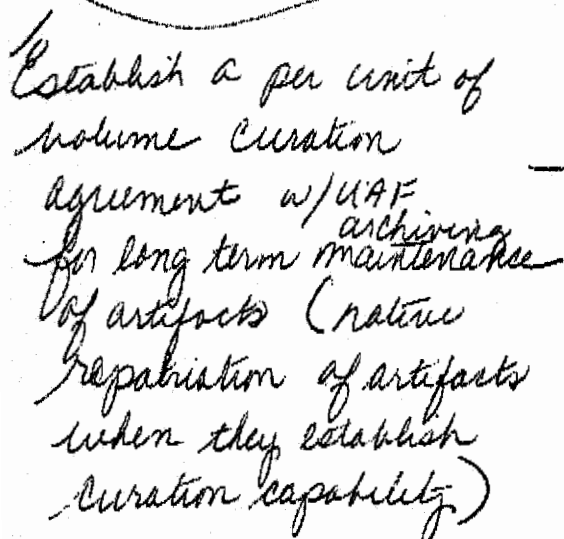 Establish a per unit of
volume curation
agreement w/UAF
archiving
for long term maintenance
of artifacts (native
repatriation of artifacts
when they establish
curation capability)